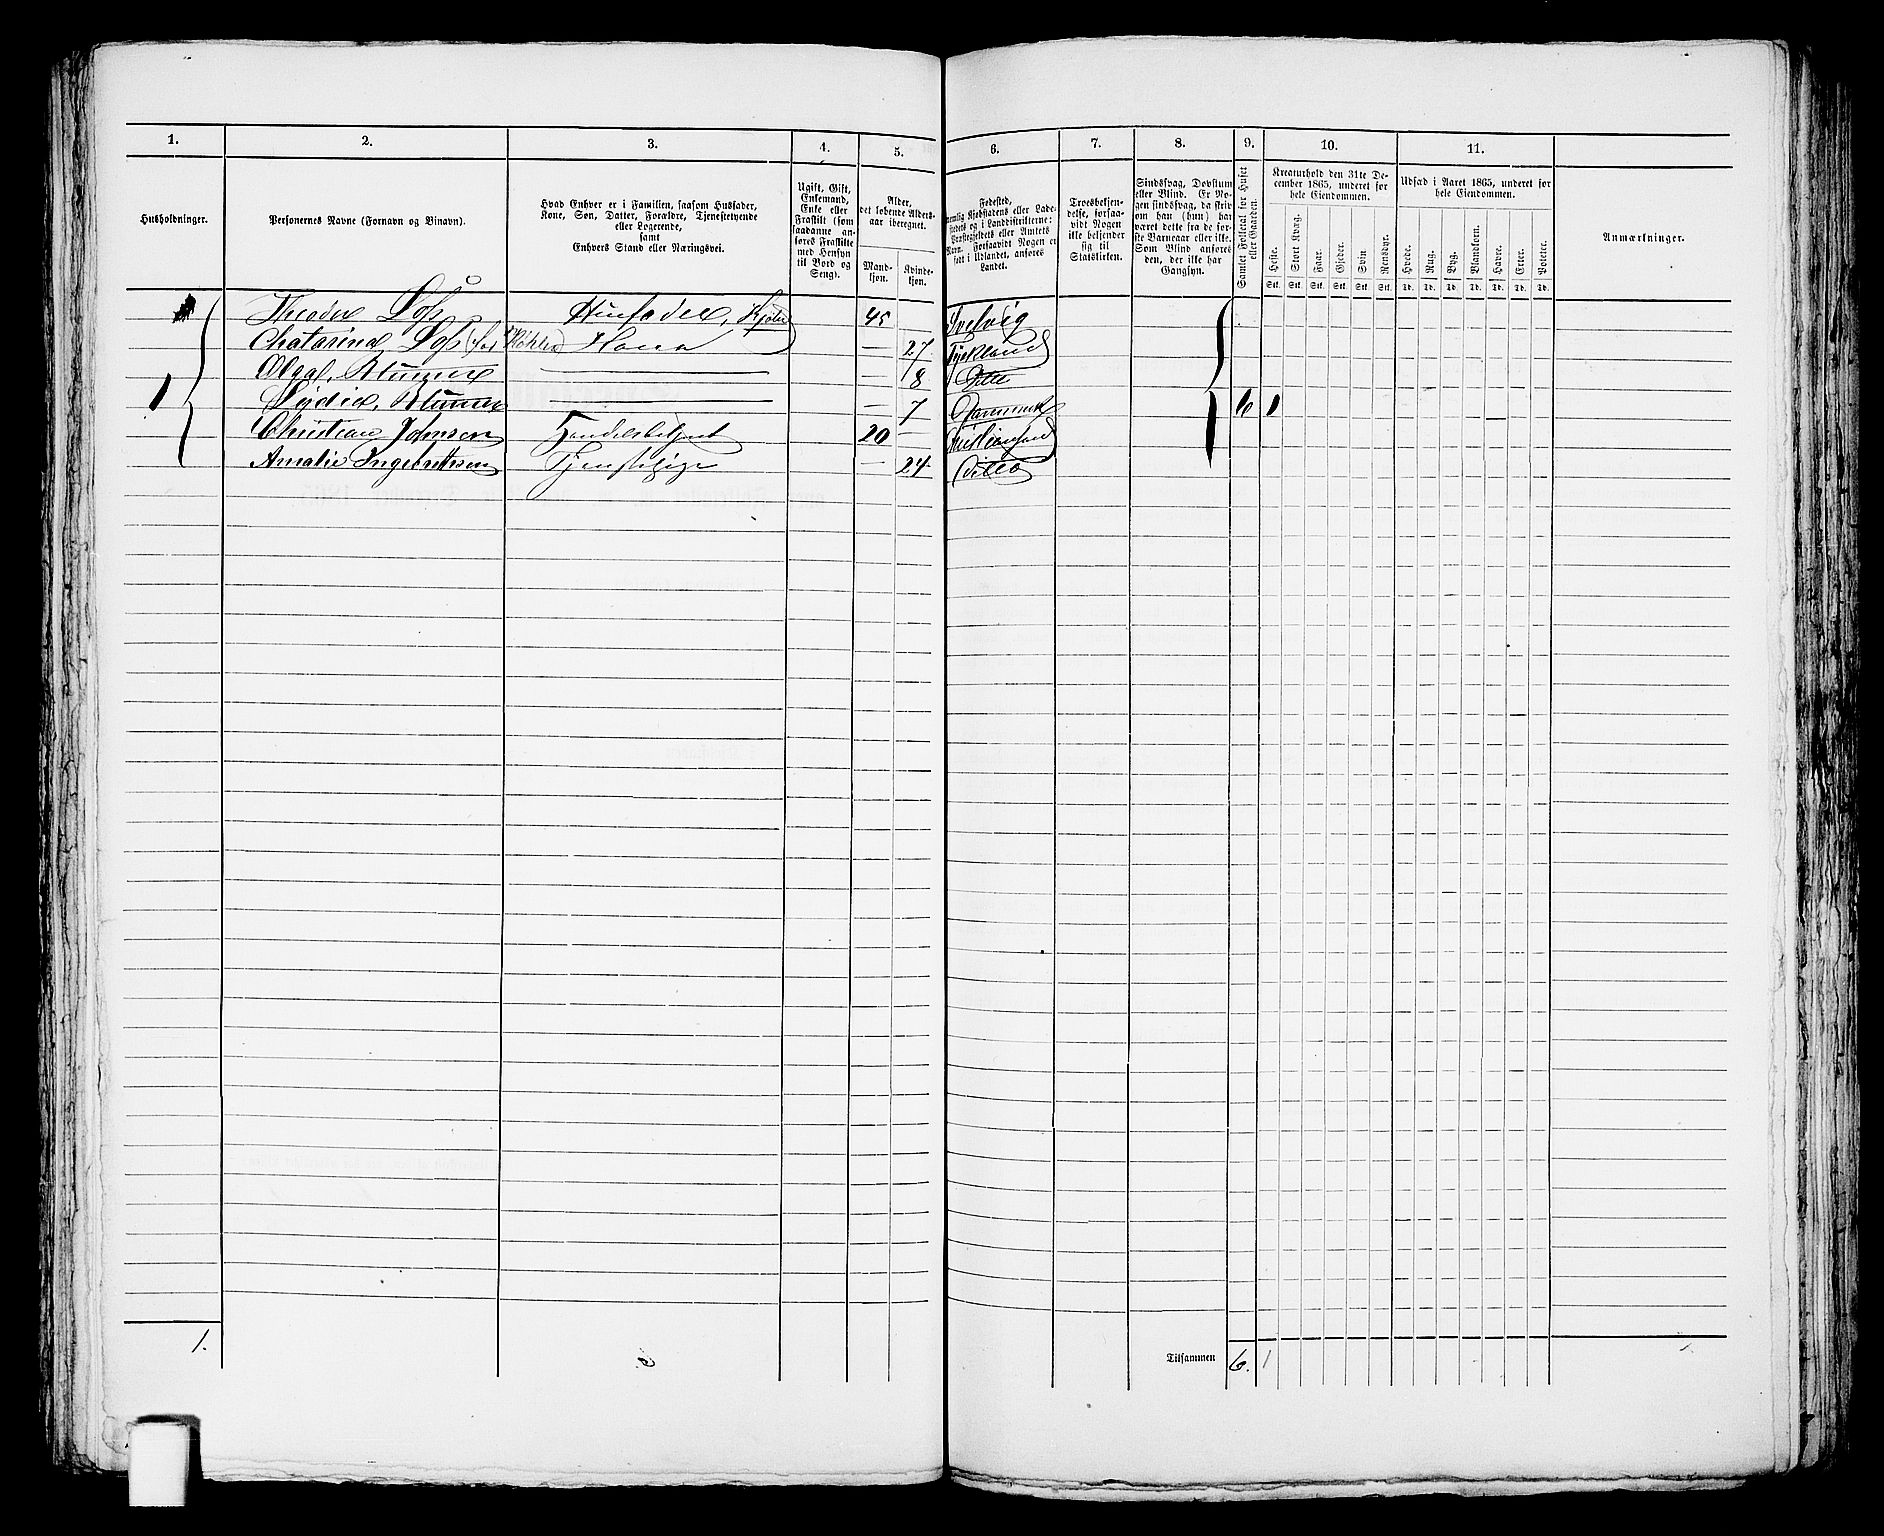 1. 2. 3. 4. 5. 6. 7. 8. 9. 10. 11.
Husholdninger.
Personernes Navne (Fornavn og Binavn).
Hvad Enhver er i Familien, saasom Husfader,
Kone, Søn, Datter, Forældre, Tjenestetyende
eller Logerende,
samt
Enhvers Stand eller Næringsvei.
Ugift, Gift,
Enkemand,
Enke eller
Fraskilt (som
saadanne an-
føres Fraskilte
med Hensyn
til Bord og
Seng).
Alder,
det løbende Alders-
aar iberegnet.
Mand-
kjøn.
Kvinde-
kjøn.
Fødested,
nemlig Kjøbstadens eller Lade-
stedets og i Landdistrikterne:
Præstegjeldets eller Amtets
Navn. Forsaavidt Nogen er
født i Udlandet, anføres
Landet.
Troesbekjen-
delse, forsaa-
vidt Nogen
ikke bekjender
sig til
Statskirken.
Sindssvag, Døvstum
eller Blind. Er No-
gen sindssvag, da skriv
om han (hun) har
været dette fra de før-
ste Barneaar eller ikke.
Som Blind anføres
den, der ikke har
Gangsyn.
Samlet Folketal for Huset
eller Gaarden.
Kreaturhold den 31te De-
cember 1865, underet for
hele Eiendommen.
Heste. Stort Kvæg. Faar. Gjeder. Svin Rensdyr.
Stk. Stk. Stk. Stk. Stk. Stk.
Udsæd i Aaret 1865, underet for
hele Eiendommen.
Hvede. Rug. Byg. Blandkorn. Havre. Erter. Poteter.
Td. Td. Td. Td. Td. Td. Td.
Anmærkninger.
Theodor Husfader, 45 Svelvig
Chatarina Kone — 27 Tyskland
Olga, — 8 Ditto
Lydia, — 7 Danmark 6 1
1
Christian Johnsen Handelsbetjent 20 — Christiansand
Amalie Ingebretsen Tjenstepige — 24 ditto
1. Tilsammen 6. 1